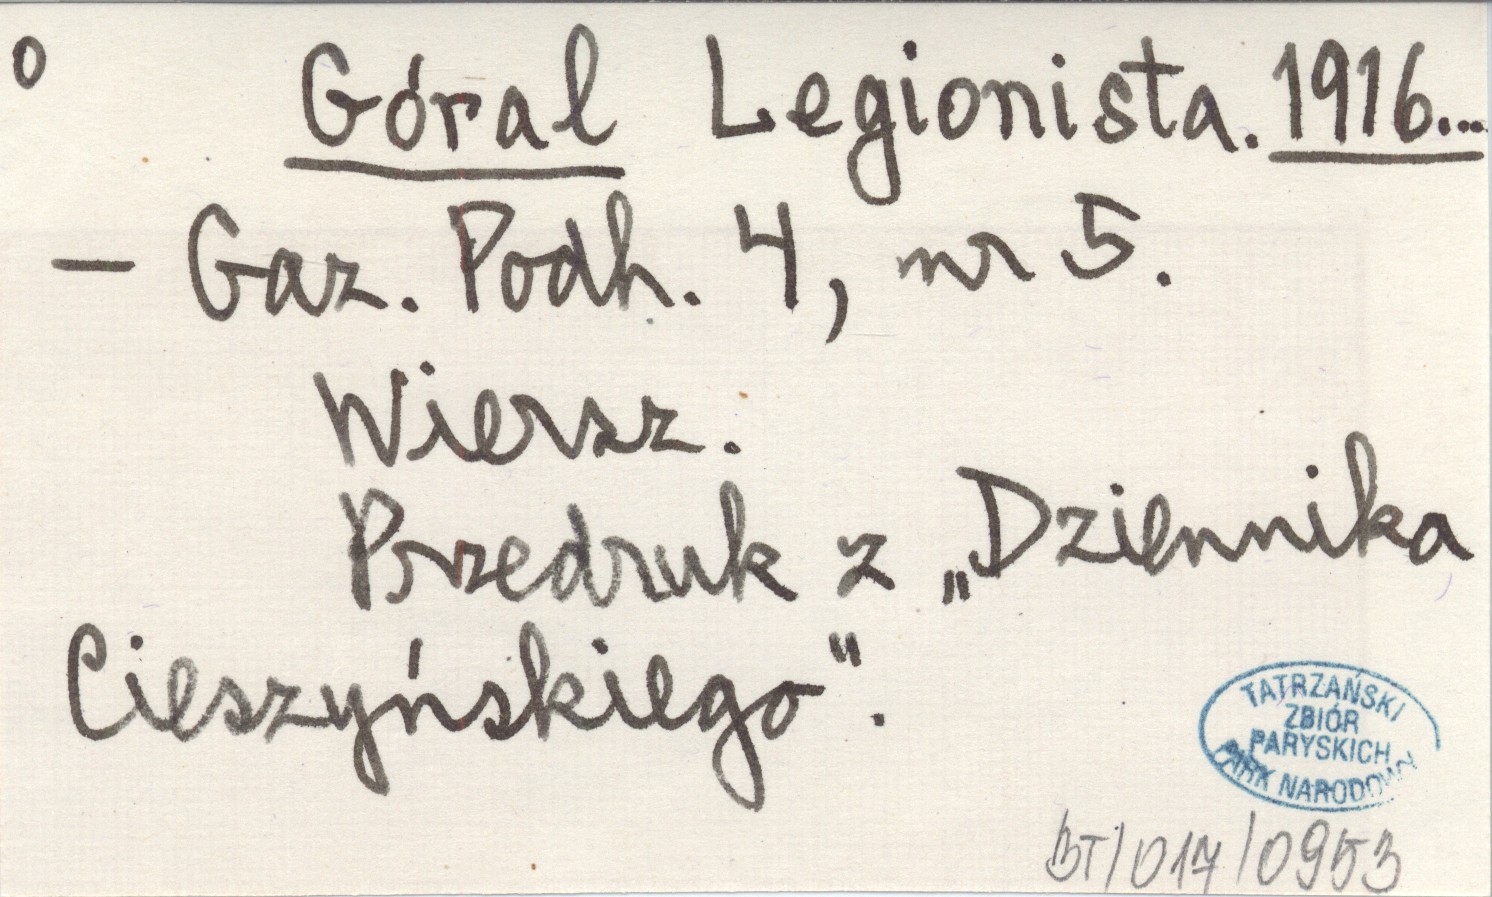 o Góral Legionista. 1916...
— Gaz. Podh. 4, nr 5.
Wiersz.
Przedruk z „Dziennika
Cieszyńskiego".
TATRZAŃSKI
ZBIÓR
PARYSKICH
PARK NARODOWY
BT/017/0953